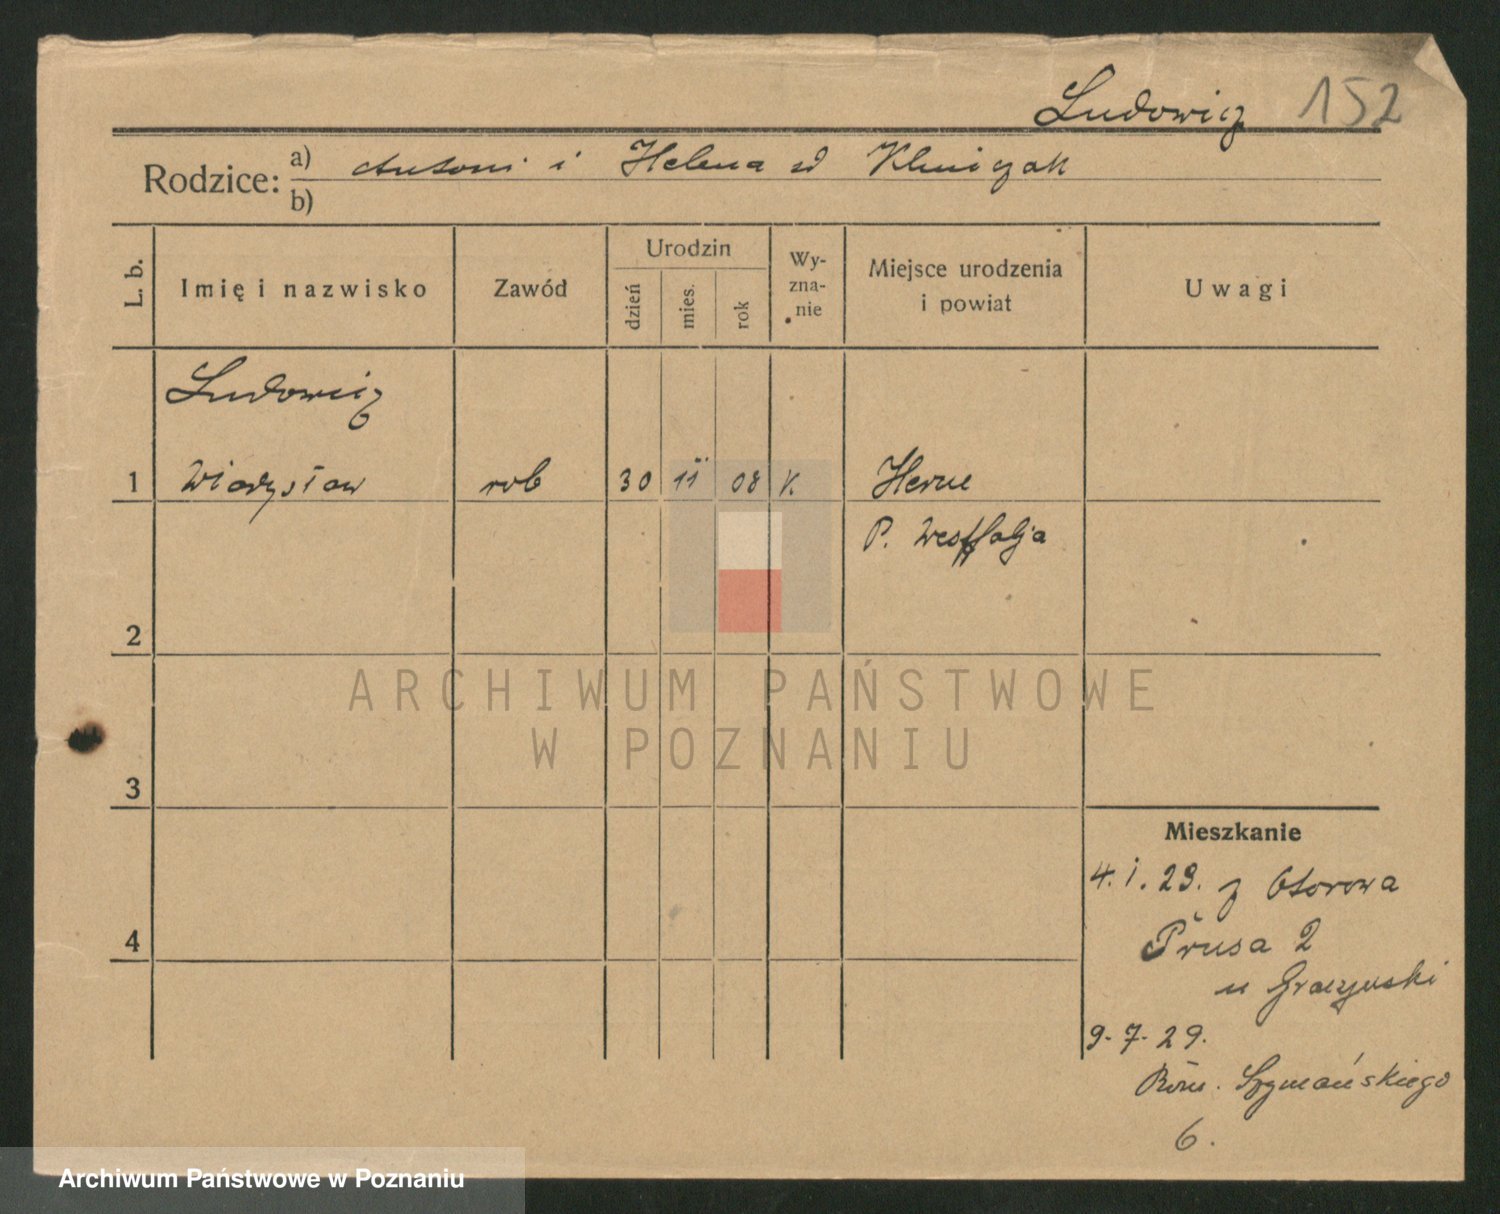 Ludowicz 152
Rodzice: a) Antoni i Helena zd Klimczak
b)
L. b. Imię i nazwisko Zawód Urodzin dzień mies. rok Wy-zna-nie Miejsce urodzenia i powiat Uwagi
Ludowicz
1 Władysław rob 30 11 08 K Herne
P. Westfalja
2
3
4
Mieszkanie
4. I. 29. z Otorowa
Prusa 2
u Graczynski
9. 7. 29.
Rom. Szymańskiego
6.
ARCHIWUM PAŃSTWOWE
W POZNANIU
Archiwum Państwowe w Poznaniu